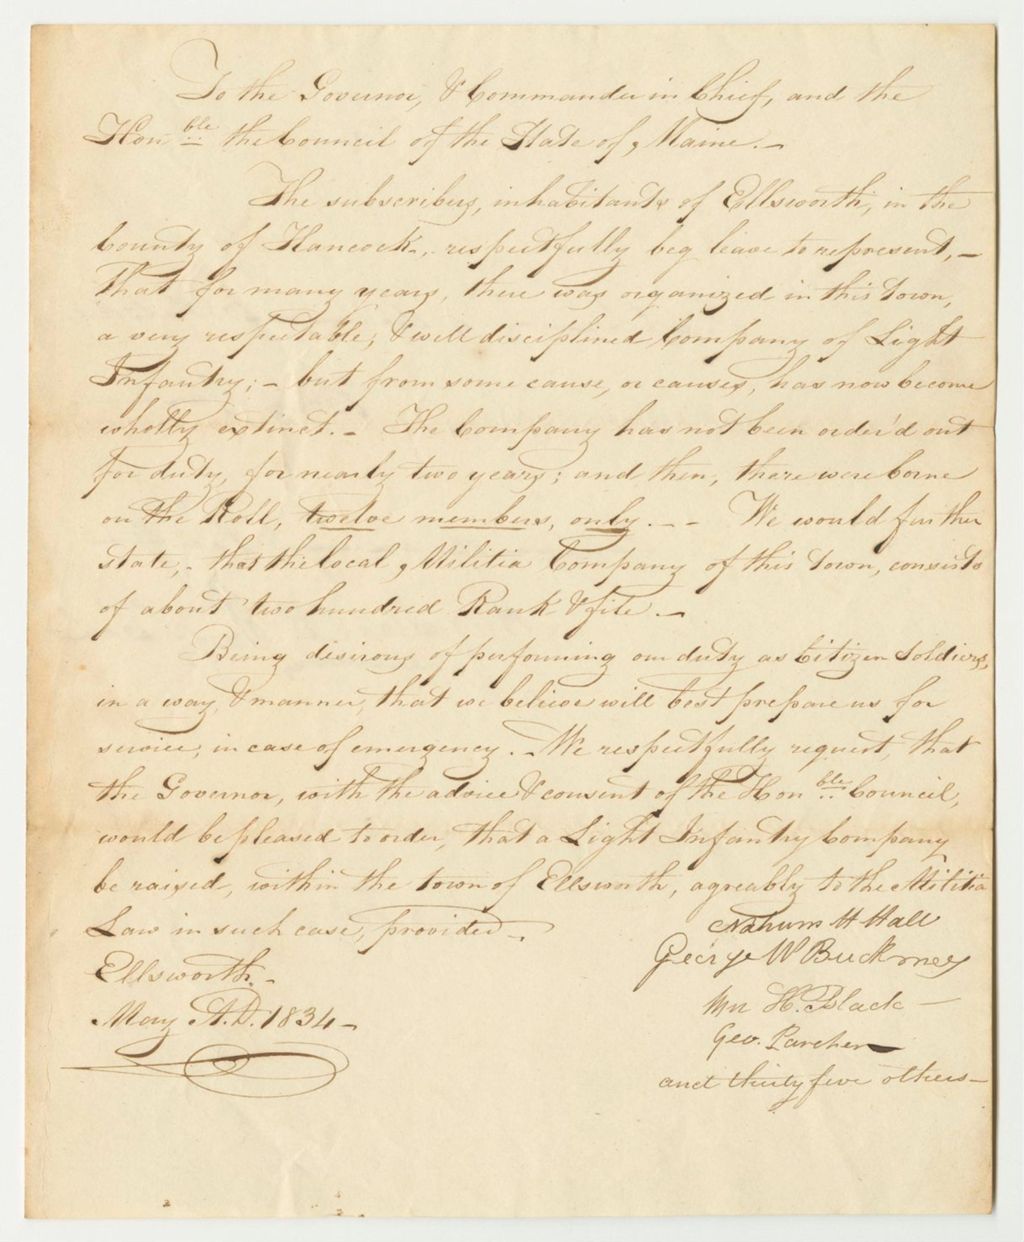 To the Governor, & Commander in Chief, and the
Hon ble the Council of the State of, Maine. –
The subscribers, inhabitants of Ellsworth, in the
County of Hancock, respectfully beg leave to represent, –
That for many years, there was organized in this town,
a very respectable, & well disciplined Company of Light
Infantry; – but from some cause, or causes, has now become
wholly extinct. – The Company has not been order'd out
for duty, for nearly two years; and then, there were borne
on the Roll, twelve members, only. – – We would further
state, – that the local, Militia Company of this town, consists
of about two hundred Rank & file. –
Being desirous of performing our duty as Citizen Soldiers,
in a way, & manner, that we believe will best prepare us for
service, in case of emergency. – We respectfully request, that
the Governor, with the advice & consent of the Hon ble Council,
would be pleased to order, that a Light Infantry Company
be raised, within the town of Ellsworth, agreably to the Militia
Law in such case, provided –
Nahum H Hall
Ellsworth –
George W Buckmey
May A.D. 1834 –
Wm H. Black –
Geo. Parcher –
and thirty five others –